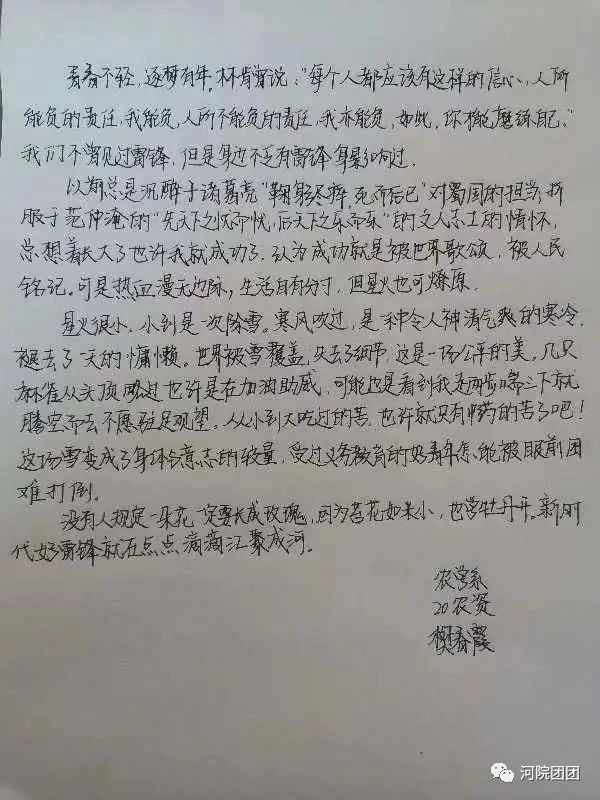 青春不轻,逐梦有年。林肯曾说:“每个人都应该有这样的信心,人所
能负的责任,我能负,人所不能负的责任,我亦能负,如此,你才能磨练自己。”
我们不曾见过雷锋,但是身边不乏有雷锋身影闪过。
以前总是沉醉于诸葛亮“鞠躬尽瘁,死而后已”对蜀国的担当,折
服于范仲淹的“先天下之忧而忧,后天下之乐而乐”的文人志士的情怀,
总想着长大了也许我就成功了,认为成功就是被世界歌颂,被人民
铭记。可是热血漫无边际,生活自有分寸,但星火也可燎原。
星火很小,小到是一次除雪。寒风吹过,是一种令人神清气爽的寒冷,
褪去了一天的慵懒。世界被雪覆盖,失去了细节,这是一场公平的美。几只
麻雀从头顶略过也许是在加油助威,可能也是看到我走两步喘三下就
腾空而去不愿驻足观望。从小到大吃过的苦,也许就只有中药的苦了吧!
这场雪变成了身体与意志的较量,受过义务教育的好青年怎能被眼前困
难打倒。
没有人规定一朵花一定要长成玫瑰,因为苔花如米小,也学牡丹开。新时
代好雷锋就在点点滴滴汇聚成河。
农学系
20农资
春霞
河院团团